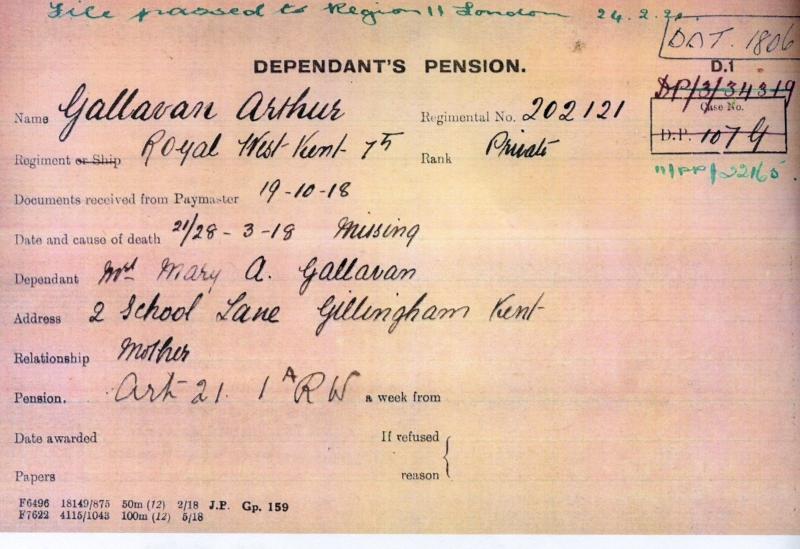 File passed to Region 11 London 24.2.
DAT. 1806
DEPENDANT'S PENSION.
D.1
DP/3/34319
Name Gallavan Arthur Regimental No. 202121
Case No.
D.P. 107 G
Regiment or Ship Royal West Kent 7th Rank Private
11/PP/22165
Documents received from Paymaster 19-10-18
Date and cause of death 21/28-3-18 Missing
Dependant Mrs Mary A. Gallavan
Address 2 School Lane Gillingham Kent
Relationship Mother
Pension. Art 21. 1 A RW a week from
Date awarded If refused
Papers reason
F6496 18149/875 50m (12) 2/18 J.P. Gp. 159
F7622 4115/1043 100m (12) 5/18